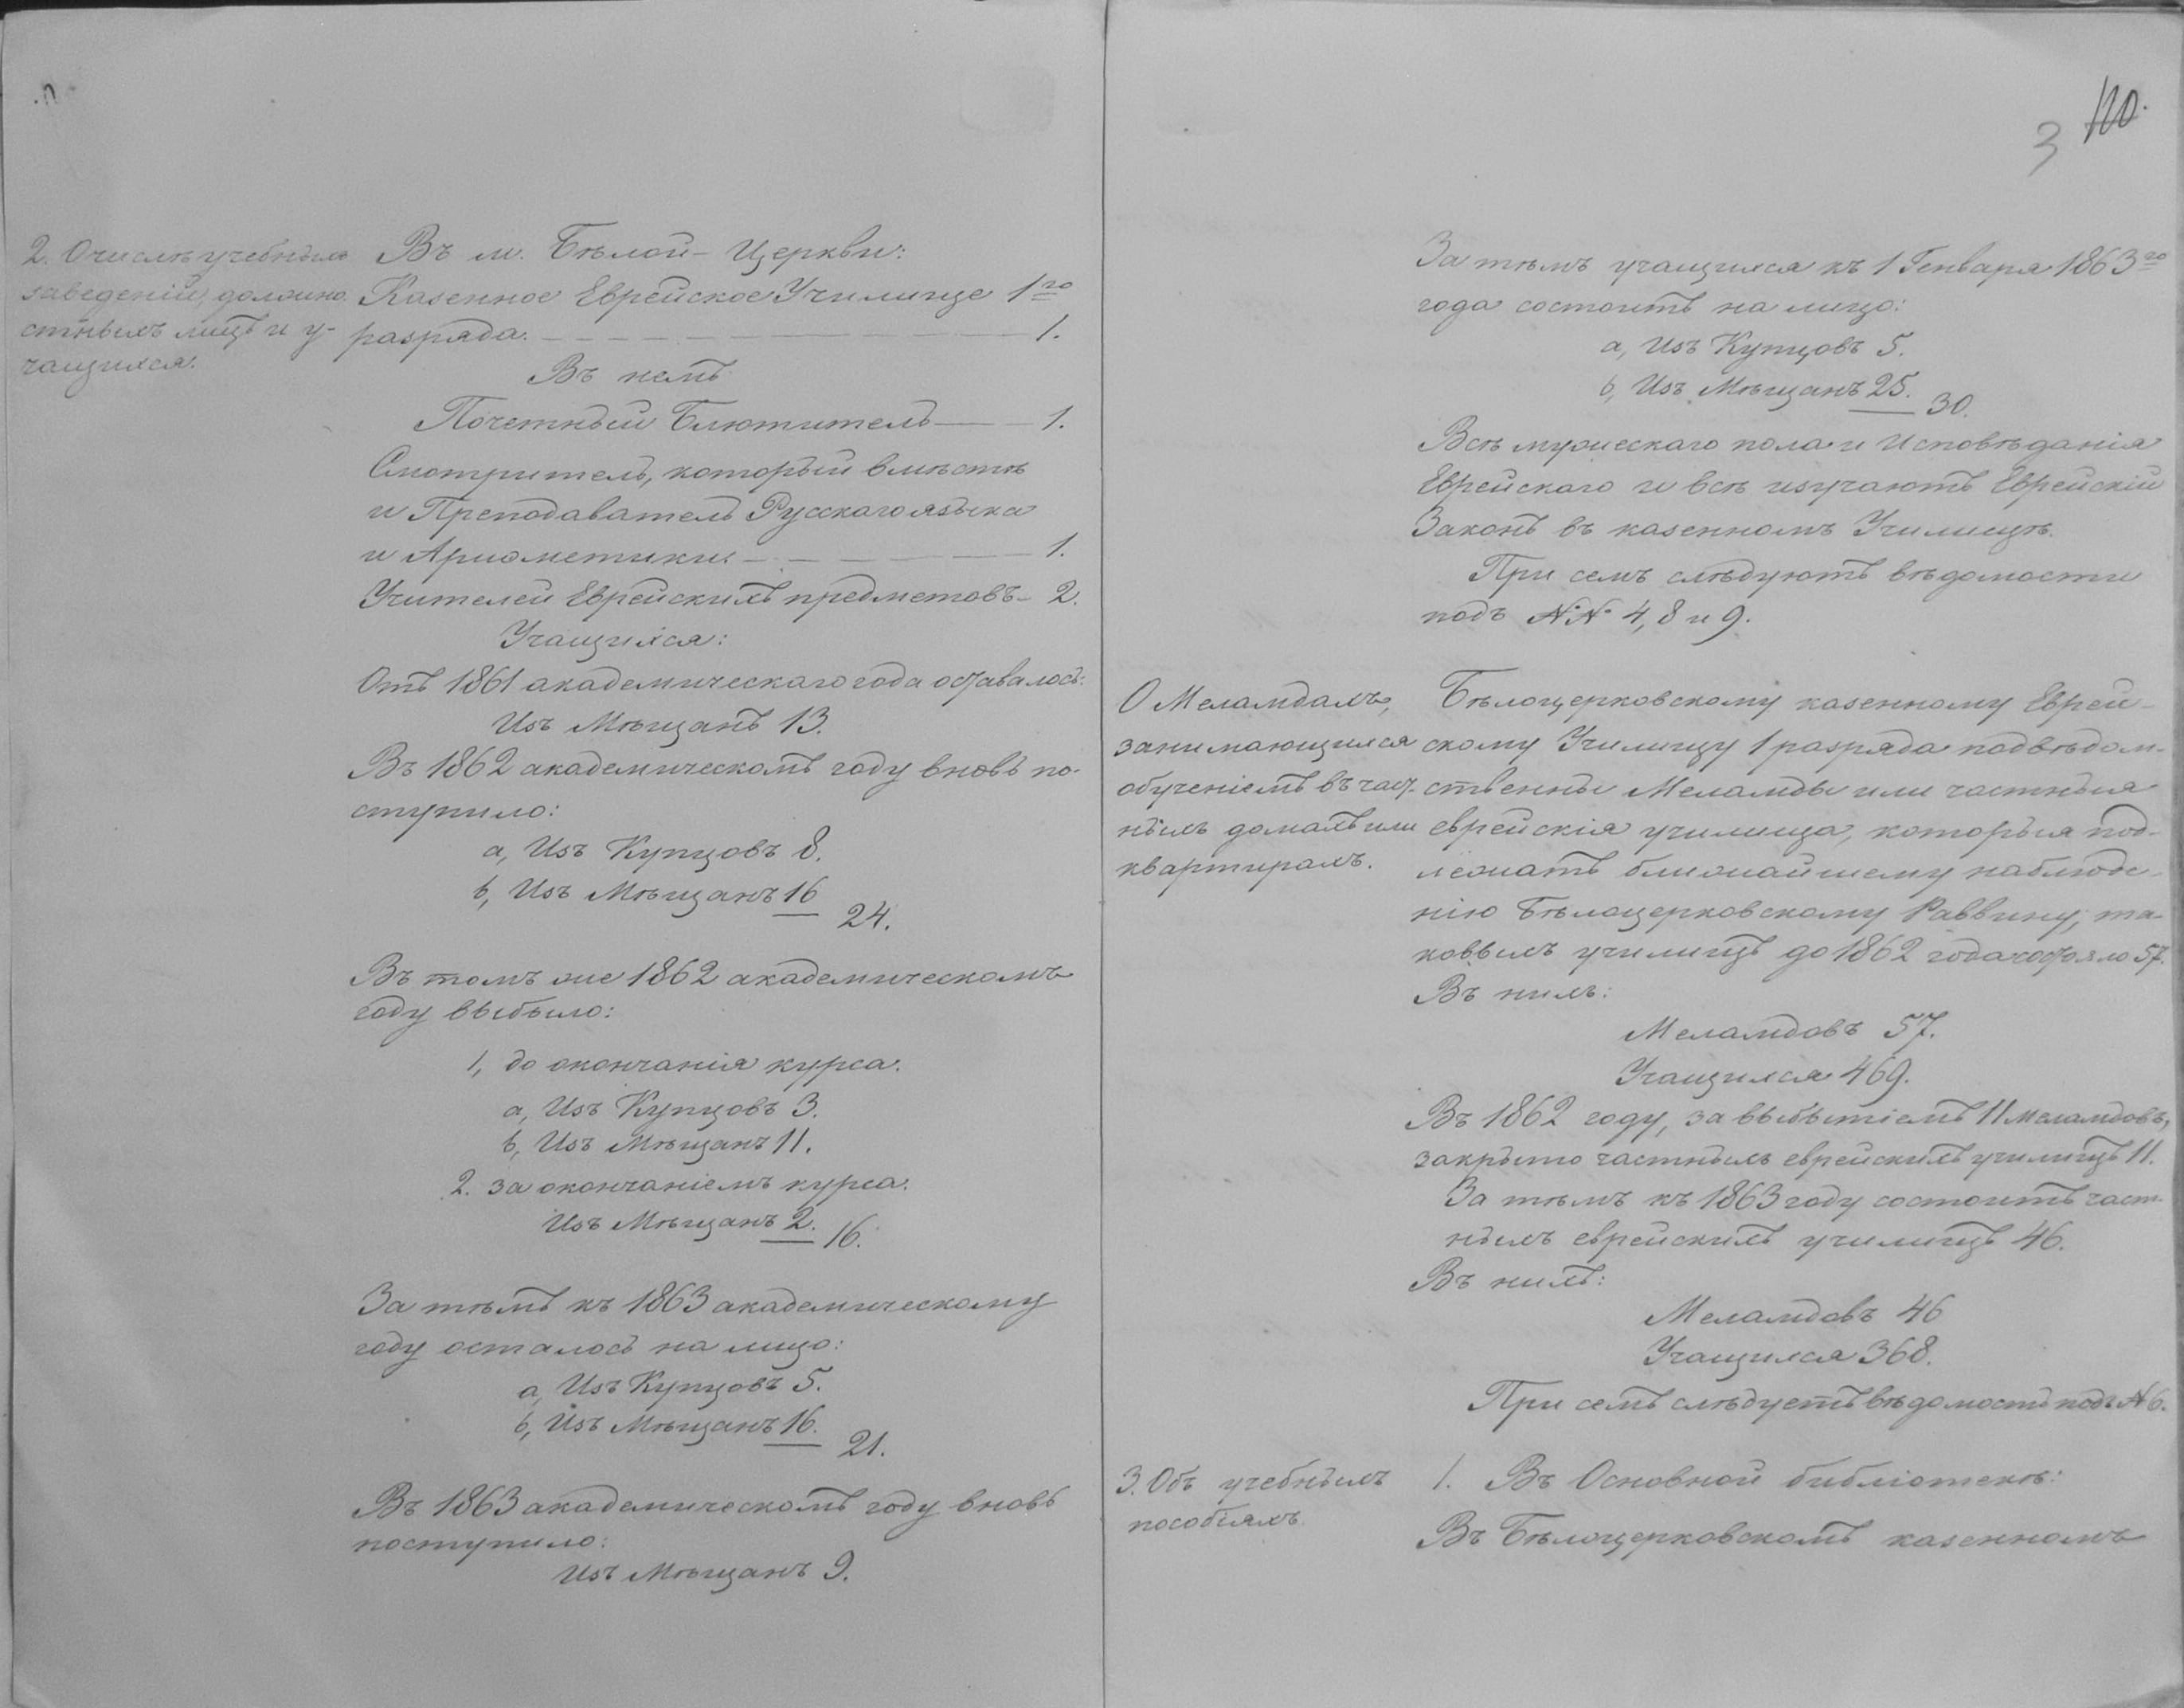 2. О числѣ учебныхъ
заведеній, должно
стныхъ лицъ и у-
чащихся.
Въ м. Бѣлой-Церкви:
Казенное Еврейское Училище 1го
разряда. — 1.
Въ немъ
Почетный Блюститель — 1.
Смотритель, который вмѣстѣ
и Преподаватель Русскаго языка
и Ариѳметики — 1.
Учителей Еврейскихъ предметовъ — 2.
Учащихся:
Отъ 1861 академическаго года оставалось:
Изъ Мѣщанъ 13.
Въ 1862 академическомъ году вновь по-
ступило:
а, Изъ Купцовъ 8.
b, Изъ Мѣщанъ 16
24.
Въ томъ же 1862 академическомъ
году выбыло:
1, до окончанія курса.
а, Изъ Купцовъ 3.
b, Изъ Мѣщанъ 11.
2. за окончаніемъ курса.
Изъ Мѣщанъ 2.
16.
За тѣмъ къ 1863 академическому
году осталось на лицо:
а, Изъ Купцовъ 5.
b, Изъ Мѣщанъ 16.
21.
Въ 1863 академическомъ году вновь
поступило:
Изъ Мѣщанъ 9.
3
110.
За тѣмъ учащихся къ 1 Генваря 1863го
года состоитъ на лицо:
а, Изъ Купцовъ 5.
b, Изъ Мѣщанъ 25.
30.
Всѣ мужескаго пола и Исповѣданія
Еврейскаго и всѣ изучаютъ Еврейскій
Законъ въ казенномъ Училищѣ.
При семъ слѣдуютъ вѣдомости
подъ №№ 4, 8 и 9.
О Меламдахъ,
занимающихся
обученіемъ въ част-
ныхъ домахъ или
квартирахъ.
Бѣлоцерковскому казенному Еврей-
скому Училищу 1 разряда подвѣдом-
ственны Меламды или частныя
еврейскія училища, которыя под-
лежатъ ближайшему наблюде-
нію Бѣлоцерковскому Раввину; та-
ковыхъ училищъ до 1862 года состояло 57.
Въ нихъ:
Меламдовъ 57.
Учащихся 469.
Въ 1862 году, за выбытіемъ 11 меламдовъ,
закрыто частныхъ еврейскихъ училищъ 11.
За тѣмъ къ 1863 году состоитъ част-
ныхъ еврейскихъ училищъ 46.
Въ нихъ:
Меламдовъ 46
Учащихся 368.
При семъ слѣдуетъ вѣдомость подъ № 6.
3. Объ учебныхъ
пособіяхъ.
1. Въ Основной библіотекѣ:
Въ Бѣлоцерковскомъ казенномъ